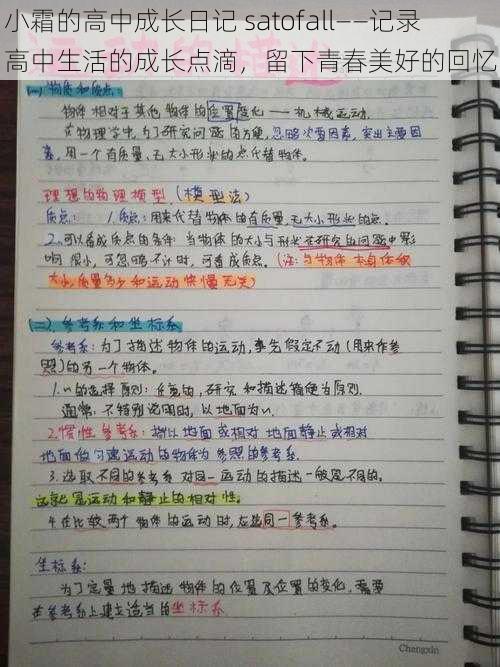 小霜的高中成长日记 satofall——记录
高中生活的成长点滴，留下青春美好的回忆
(一)物质和质点：
物体相对于其他物体的位置变化——机械运动.
在物理学中，为了研究问题的方便，忽略次要因素，突出主要因
素，用一个有质量，无大小形状的点代替物体。
理想的物理模型（模型法）
质点： 1.质点：用来代替物体的有质量，无大小形状的点.
2.可以看成质点的条件 当物体的大小与形状在研究的问题中影
响很小，可忽略不计时，可看成质点。(注：与物体本身体积
大小质量多少和运动快慢无关)
(二)参考系和坐标系
参考系：为了描述物体的运动，事先假定不动(用来作参
照)的另一个物体。
的选择原则：任意的，研究和描述简便为原则.
通常，不特别说明时，以地面为
2.惯性参考系：指以地面或相对地面静止或相对
地面做匀速运动的物体为参照的参考系.
3.选取不同的参考系对同一运动的描述一般是不同的.
这就是运动和静止的相对性。
4.在比较两个物体的运动时，应选同一参考系。
坐标系：
为了定量地描述物体的位置及位置的变化，需要
在参考系上建立适当的坐标系
Chengxin